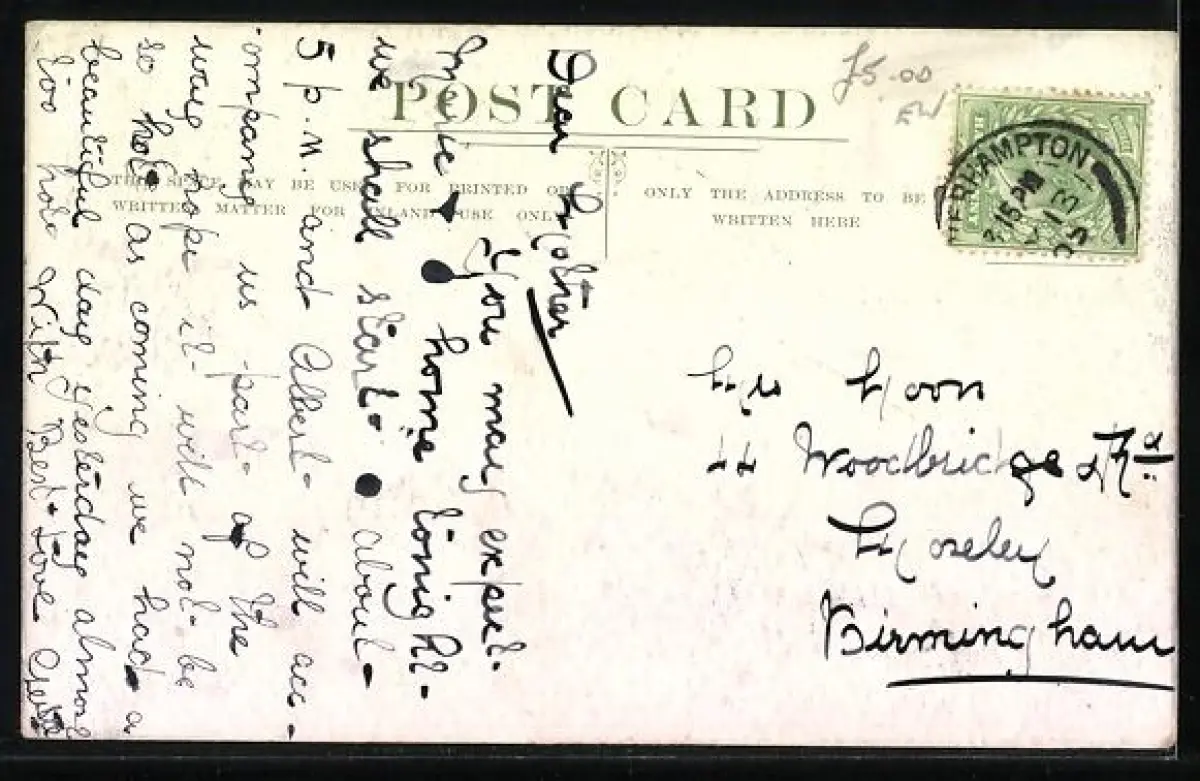 POST CARD
£5.00
EW
THIS SPACE MAY BE USED FOR PRINTED OR
WRITTEN MATTER FOR INLAND USE ONLY
ONLY THE ADDRESS TO BE
WRITTEN HERE
ERHAMPTON
15 PM
Dear Mother
You may expect
me home tonight
we shall start about
5 p.m. and Albert will acc-
ompany us part of the
way hope it will not be
so hot as coming we had a
beautiful day yesterday almost
too hot With Best Love
Mrs Moon
44 Woodbridge Rd
Moseley
Birmingham